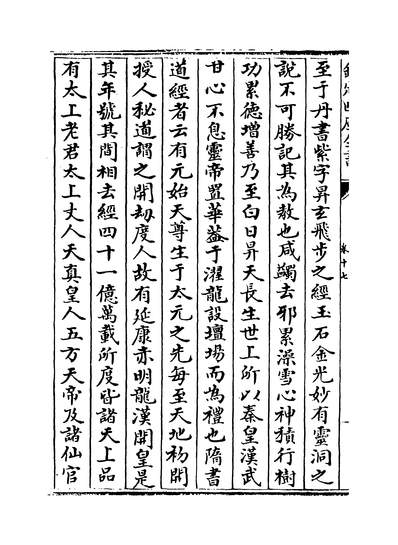 欽定四庫全書
卷十七
至于丹書紫字昇玄飛步之經玉石金光妙有靈洞之
說不可勝記其為教也咸蠲去邪累澡雪心神積行樹
功累德增善乃至白日昇天長生世上所以秦皇漢武
甘心不息靈帝置華葢于濯龍設壇場而為禮也隋書
道經者云有元始天尊生于太元之先每至天地初開
授人秘道謂之開劫度人故有延康赤明龍漢開皇是
其年號其間相去經四十一億萬載所度皆諸天上品
有太上老君太上丈人天真皇人五方天帝及諸仙官